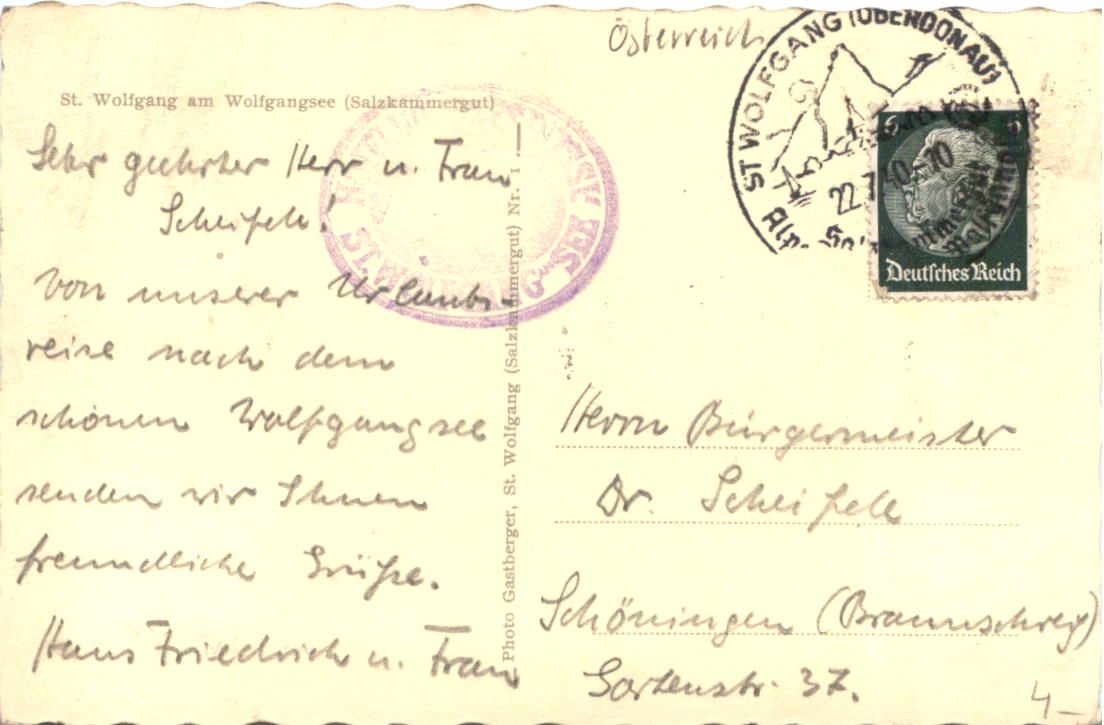 Österreich
ST WOLFGANG (OBERDONAU)
22.7.40-10
6
Deutsches Reich
St. Wolfgang am Wolfgangsee (Salzkammergut)
ST. WOLFGANG-SEE
Sehr geehrter Herr u. Frau
Scheifele!
Von unserer Urlaubs-
reise nach dem
schönen Wolfgangsee
senden wir Ihnen
freundliche Grüße.
Hans Friedrich u. Frau
Photo Gastberger, St. Wolfgang (Salzkammergut) Nr. 1
Herrn Bürgermeister
Dr. Scheifele
Schöningen (Braunschweig)
Gartenstr. 37.
4-